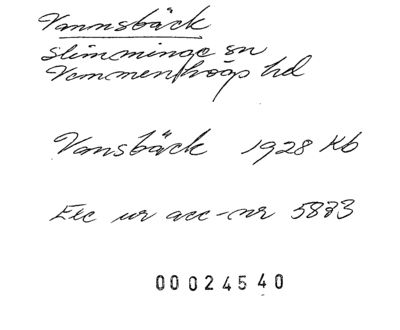 Vannsbäck
Slimminge sn
Vemmenhögs hd
Vansbäck 1928 Kb
Exc ur acc-nr 5883
00024540